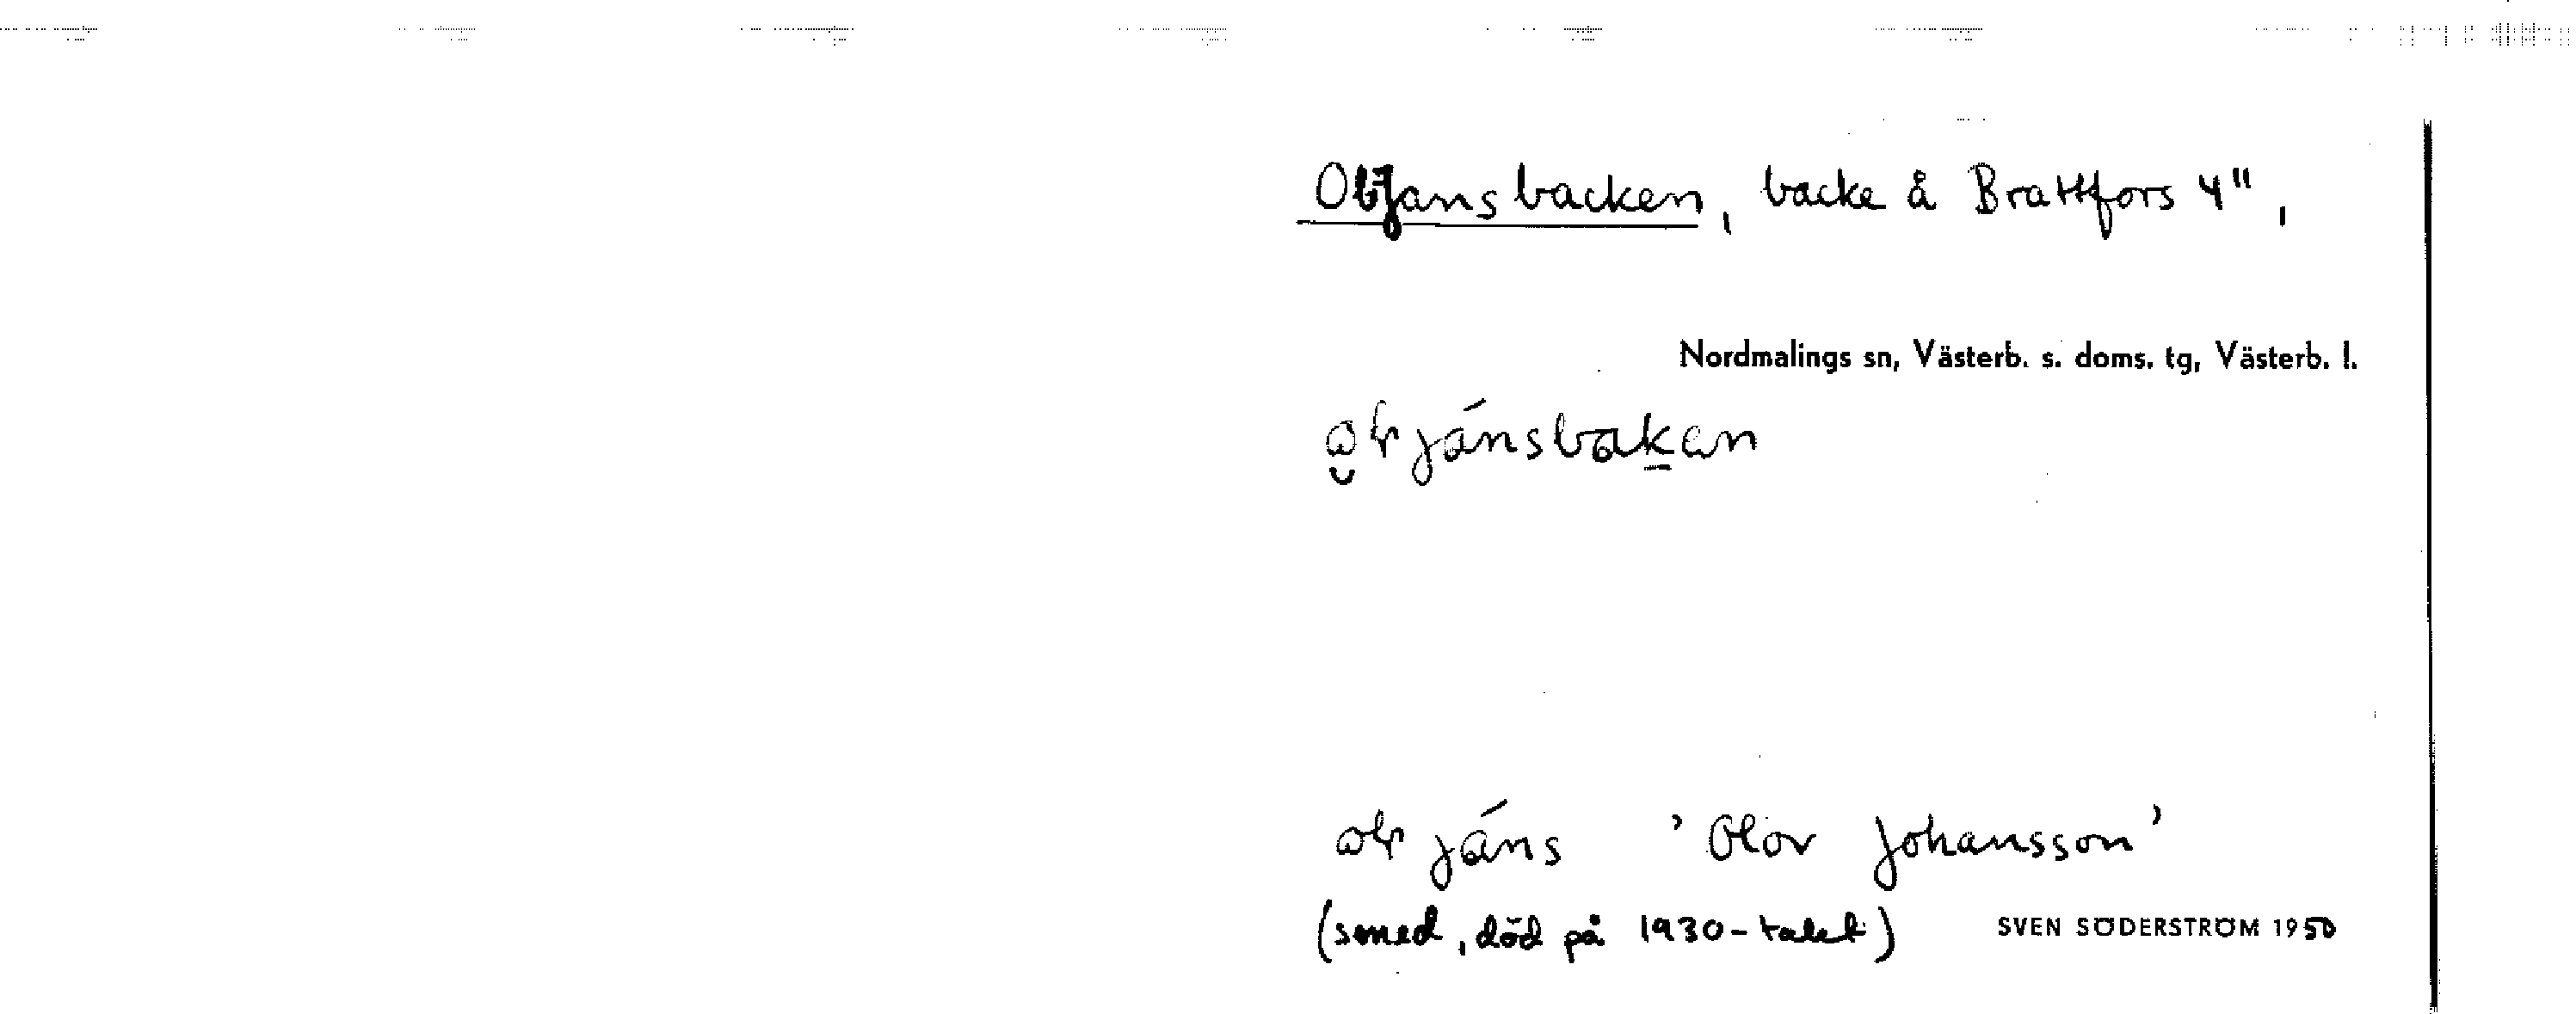 Ol-Jansbacken, backe å Brattfors 4",
Nordmalings sn, Västerb. s. doms. tg, Västerb. l.
jánsbakan
jáns 'Olov Johansson'
(smed, död på 1930-talet) SVEN SÖDERSTRÖM 1950